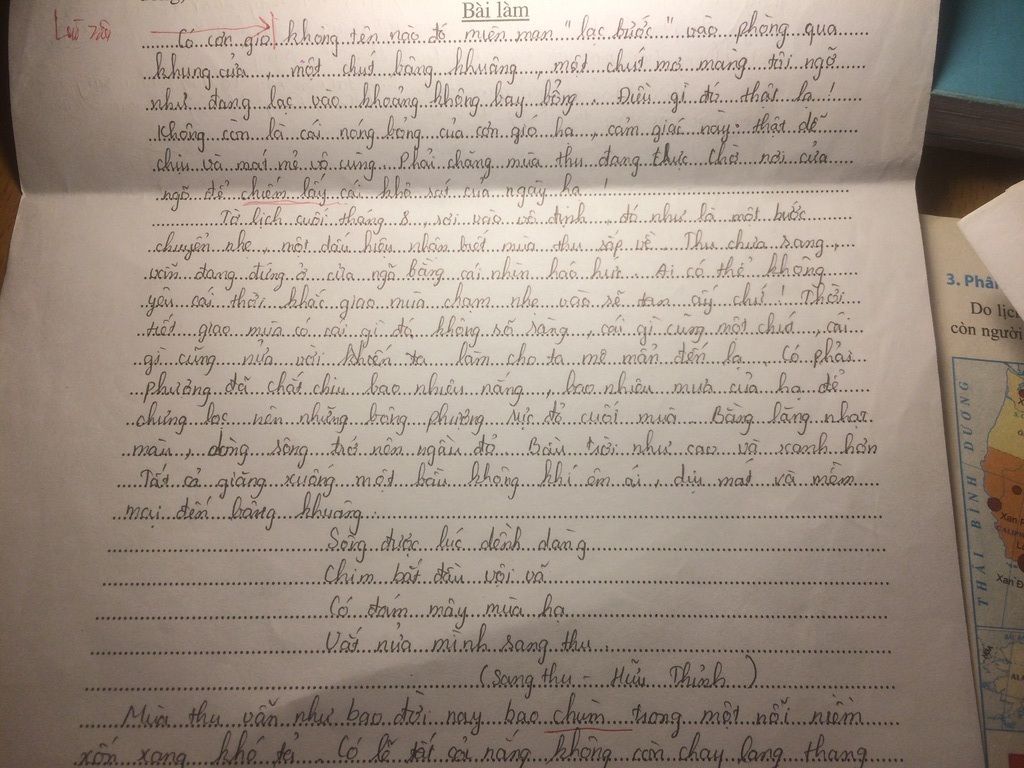 Bài làm
Có cơn gió không tên nào đó miên man "lạc bước" vào phòng qua
khung cửa, một chút bâng khuâng, một chút mơ màng tôi ngỡ
như đang lạc vào khoảng không bay bổng. Điều gì đó thật lạ!
Không còn là cái nóng bỏng của cơn gió hạ, cảm giác này thật dễ
chịu và mát mẻ vô cùng. Phải chăng mùa thu đang thực chờ nơi cửa
ngõ để chiếm lấy cái khô sát của ngày hạ!
Tờ lịch cuối tháng 8, rơi vào vô định, đó như là một bước
chuyển nhẹ, một dấu hiệu nhận biết mùa thu sắp về. Thu chưa sang,
vẫn đang đứng ở cửa ngõ bằng cái nhìn háo hức. Ai có thể không
yêu cái thời khắc giao mùa chạm nhẹ vào sẽ tan ấy chứ! Thời
tiết giao mùa có cái gì đó không sỗ sàng, cái gì cũng một chút, cái
gì cũng nửa vời khiến ta làm cho ta mê mẩn đến lạ. Có phải
phượng đã chắt chiu bao nhiêu nắng, bao nhiêu mưa của hạ để
chưng lọc nên những bông phượng rực đỏ cuối mùa. Bằng lăng nhạt
màu, dòng sông trở nên ngầu đỏ. Bầu trời như cao và xanh hơn
Tất cả giăng xuống một bầu không khí êm ái, dịu mát và mềm
mại đến bâng khuâng.
Sông được lúc dềnh dàng
Chim bắt đầu vội vã
Có đám mây mùa hạ
Vắt nửa mình sang thu.
(Sang thu - Hữu Thỉnh)
Mùa thu vẫn như bao đời nay bao chùm trong một nỗi niềm
xốn xang khó tả. Có lẽ tất cả nắng không còn chạy lang thang
3. Phâ
Do lịc
còn người
THÁI BÌNH DƯƠNG